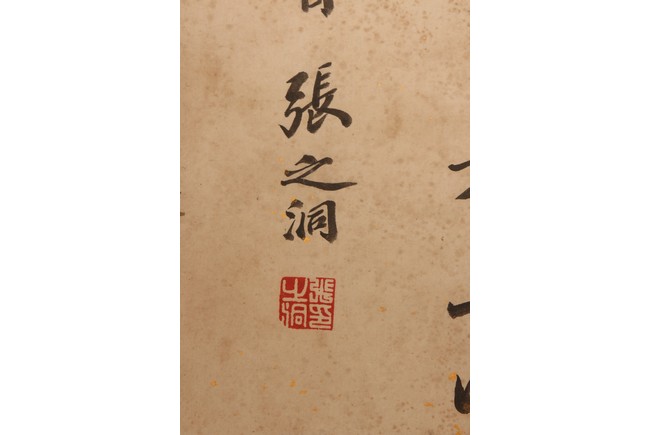 張之洞
張印
之洞